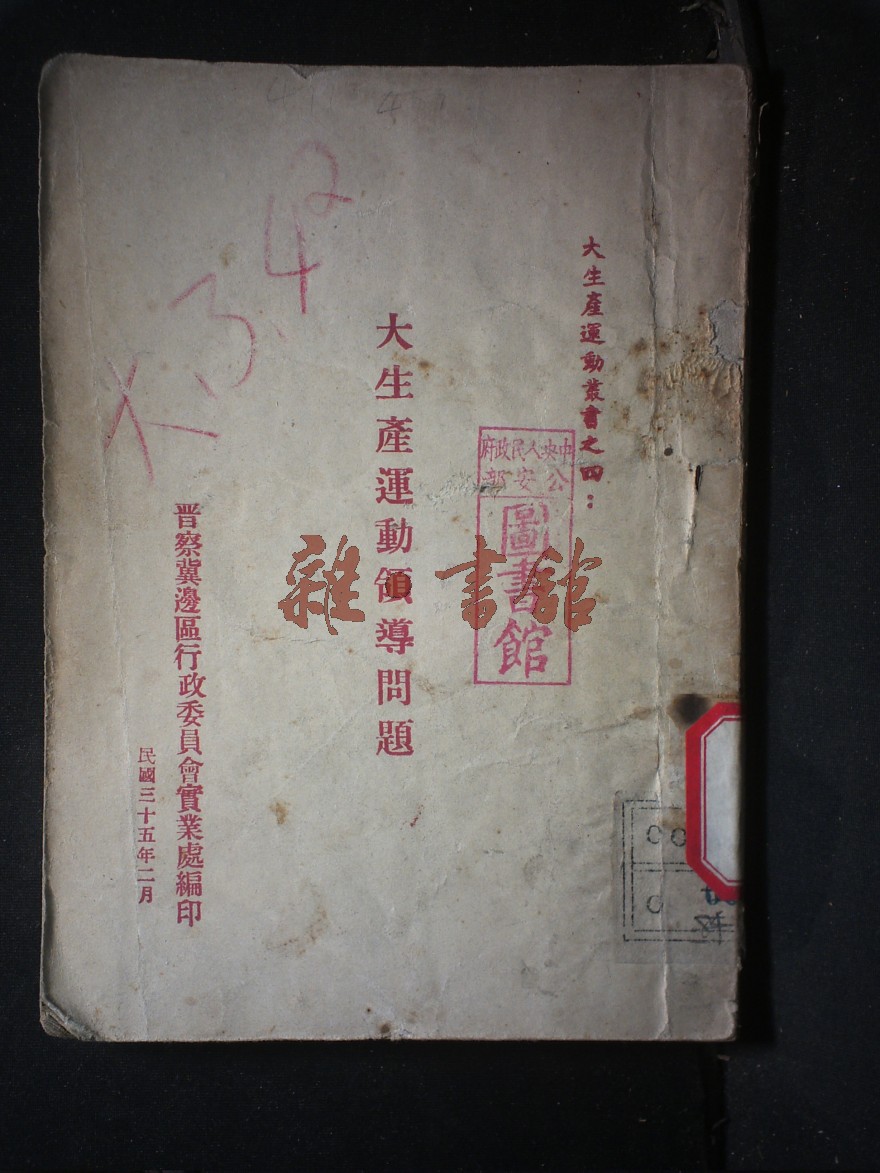 大生產運動叢書之四：
中央人民政府
公安部
圖書館
大生產運動領導問題
晋察冀邊區行政委員會實業處編印
民國三十五年二月
雜·書館